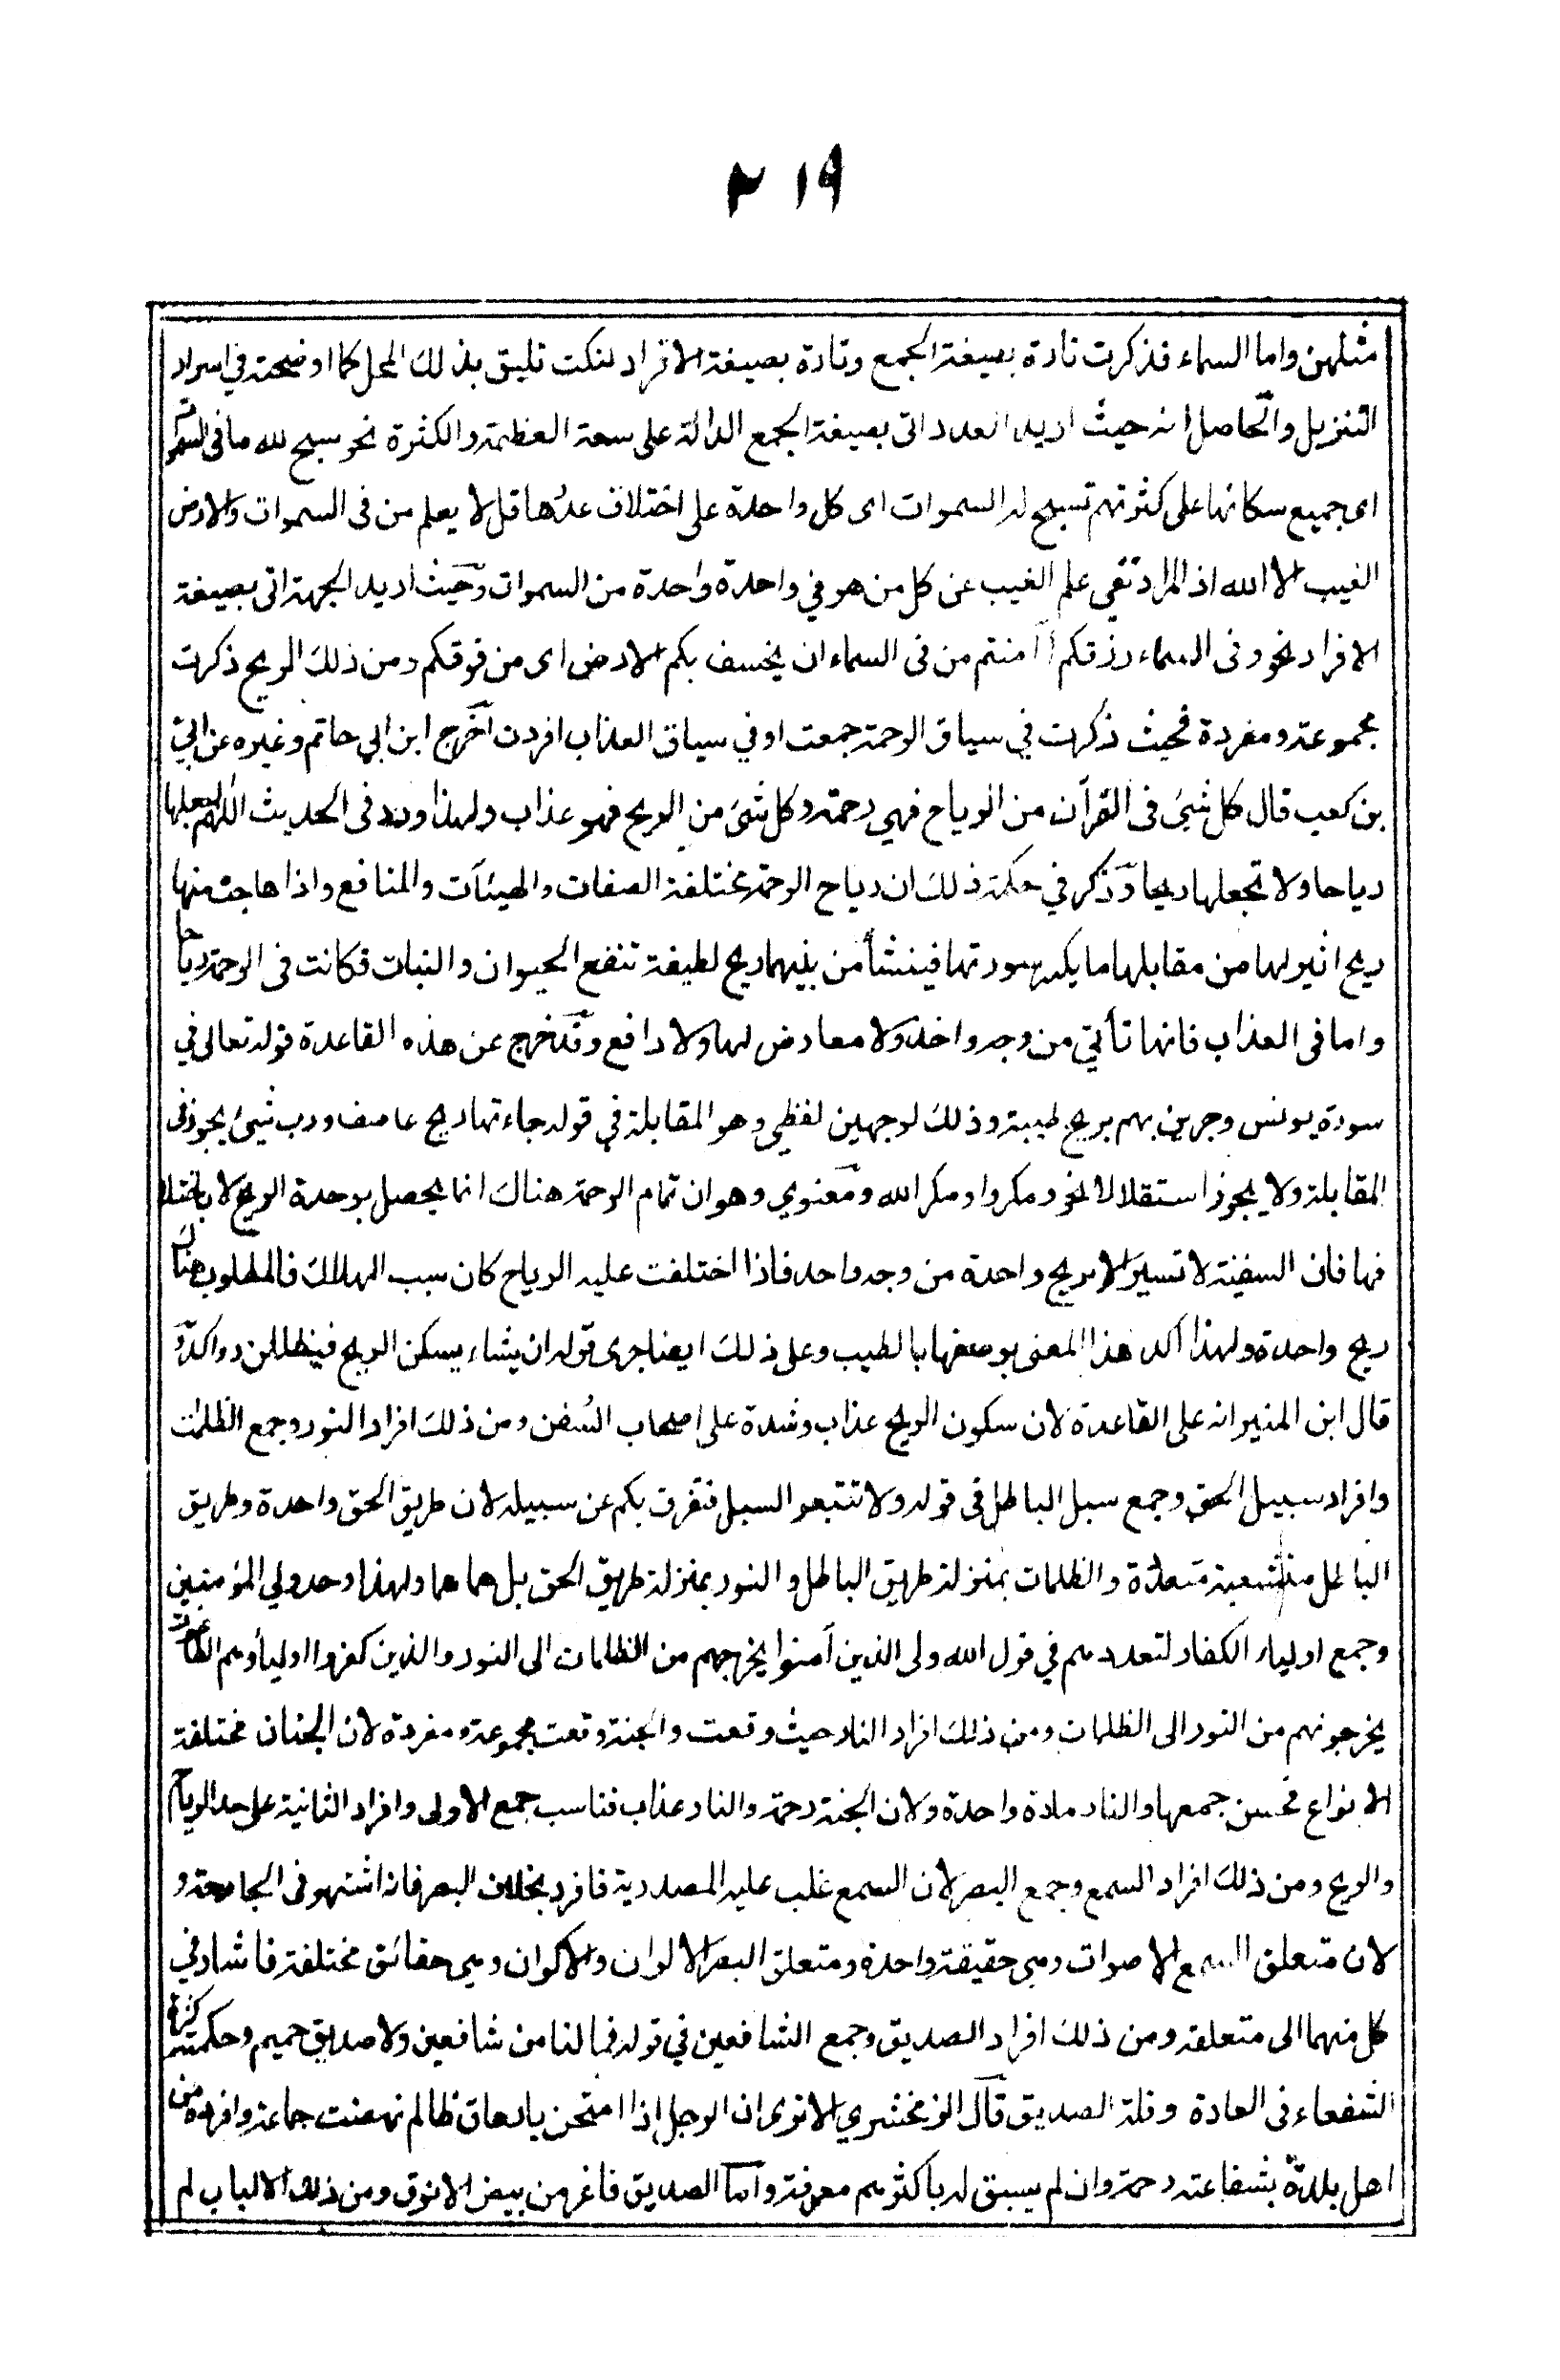 ٢١٩
مثلهن واما السماء فذكرت تارة بصيغة الجمع وتارة بصيغة الافراد لنكت تليق بذلك المحل كما اوضحته في اسرار
التنزيل والحاصل انه حيث اريد العدد اتى بصيغة الجمع الدالة على سعة العظمة والكثرة نحو سبح لله ما فى السموات
اى جميع سكانها على كثرتهم تسبح له السموات اى كل واحدة على اختلاف عددها قل لا يعلم من فى السموات والارض
الغيب الا الله اذ المراد نفي علم الغيب عن كل من هو في واحدة واحدة من السموات وحيث اريد الجهة اتى بصيغة
الافراد نحو وفى السماء رزقكم أأمنتم من فى السماء ان يخسف بكم الارض اى من فوقكم ومن ذلك الريح ذكرت
مجموعة ومفردة فحيث ذكرت في سياق الرحمة جمعت او في سياق العذاب افردت اخرج ابن ابي حاتم وغيره عن ابيّ
بن كعب قال كل شيئ فى القرآن من الرياح فهي رحمة وكل شئ من الريح فهو عذاب ولهذا ورد فى الحديث اللهم اجعلها
رياحا ولا تجعلها ريحا وذكر في حكمة ذلك ان رياح الرحمة مختلفة الصفات والهيئآت والمنافع واذا هاجت منها
ريح اثير لها من مقابلها ما يكسر سورتها فينشأ من بينهما ريح لطيفة تنفع الحيوان والنبات فكانت فى الرحمة رياحا
واما فى العذاب فانها تأتي من وجه واحد ولا معارض لها ولا دافع وقد خرج عن هذه القاعدة قوله تعالى في
سورة يونس وجرين بهم بريح طيبة وذلك لوجهين لفظي وهو المقابلة في قوله جاءتها ريح عاصف ورب شيئ يجوز فى
المقابلة ولا يجوز استقلالا نحو ومكروا ومكر الله ومعنوي وهو ان تمام الرحمة هناك انما يحصل بوحدة الريح لا باختلا
فها فان السفينة لا تسير الا بريح واحدة من وجه واحد فاذا اختلفت عليه الرياح كان سبب الهلاك فالمطلوب هناك
ريح واحدة ولهذا اكد هذا المعنى بوصفها بالطيب وعلى ذلك ايضا جرى قوله ان يشاء يسكن الريح فيظللن رواكد و
قال ابن المنير انه على القاعدة لان سكون الريح عذاب وشدة على اصحاب السفن ومن ذلك افراد النور وجمع الظلمات
وافراد سبيل الحق وجمع سبل الباطل فى قوله ولا تتبعوا السبل فتفرق بكم عن سبيله لان طريق الحق واحدة وطريق
الباطل متشعبة متعددة والظلمات بمنزلة طريق الباطل والنور بمنزلة طريق الحق بل هما هما ولهذا وحد ولي المؤمنين
وجمع اولياء الكفار لتعددهم في قول الله ولى الذين آمنوا يخرجهم من الظلمات الى النور والذين كفروا اولياؤهم الطاغوت
يخرجونهم من النور الى الظلمات ومن ذلك افراد النار حيث وقعت والجنة وقعت مجموعة ومفردة لان الجنان مختلفة
الانواع فحسن جمعها والنار مادة واحدة ولان الجنة رحمة والنار عذاب فناسب جمع الاولى وافراد الثانية على حد الرياح
والريح ومن ذلك افراد السمع وجمع البصر لان السمع غلب عليه المصدرية فافرد بخلاف البصر فانه اشتهر فى الجارحة و
لان متعلق السمع الاصوات وهى حقيقة واحدة ومتعلق البصر الالوان والاكوان وهي حقائق مختلفة فاشار في
كل منهما الى متعلقه ومن ذلك افراد الصديق وجمع الشافعين في قوله فما لنا من شافعين ولا صديق حميم وحكمته كثرة
الشفعاء فى العادة وقلة الصديق قال الزمخشري الا ترى ان الرجل اذا امتحن بارهاق ظالم نهضت جماعة وافرة من
اهل بلدة بشفاعته رحمة وان لم يسبق له باكثرهم معرفة واما الصديق فاعز من بيض الانوق ومن ذلك الالباب لم